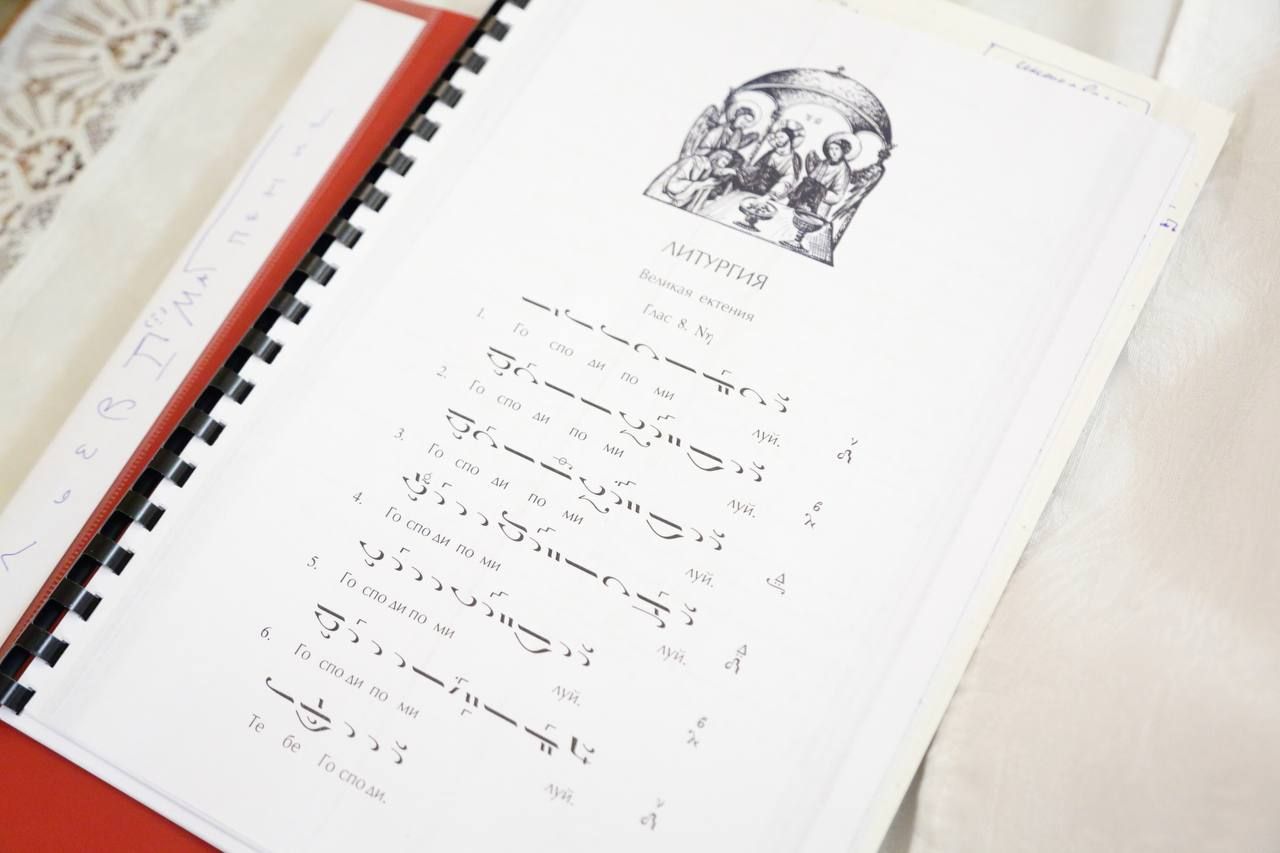 ЛИТУРГИЯ
Великая ектения
Глас 8. Νη
1. Го спо ди по ми луй.
2. Го спо ди по ми луй.
3. Го спо ди по ми луй.
4. Го спо ди по ми луй.
5. Го спо ди по ми луй.
6. Го спо ди по ми луй.
Те бе Го спо ди.